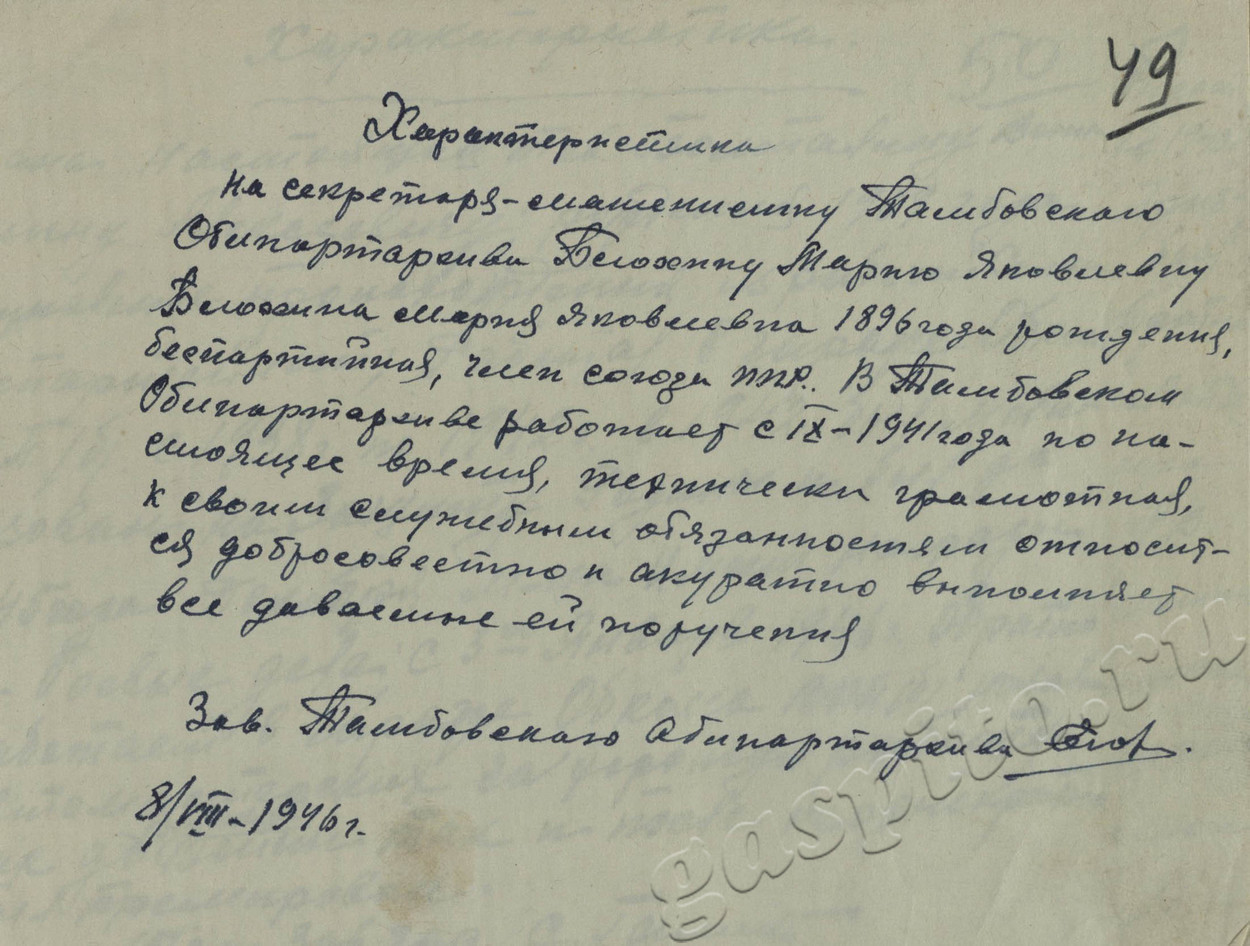 49
Характеристика
на секретаря-машинистку Тамбовского
Облпартархива Белохину Марию Яковлевну
Белохина Мария Яковлевна 1896 года рождения,
беспартийная, член союза ППР. В Тамбовском
Облпартархиве работает с IX-1941 года по на-
стоящее время, технически грамотная,
к своим служебным обязанностям относит-
ся добросовестно и акуратно выполняет
все даваемые ей поручения
Зав. Тамбовского Облпартархива
8/VIII-1946 г.
gaspito.ru